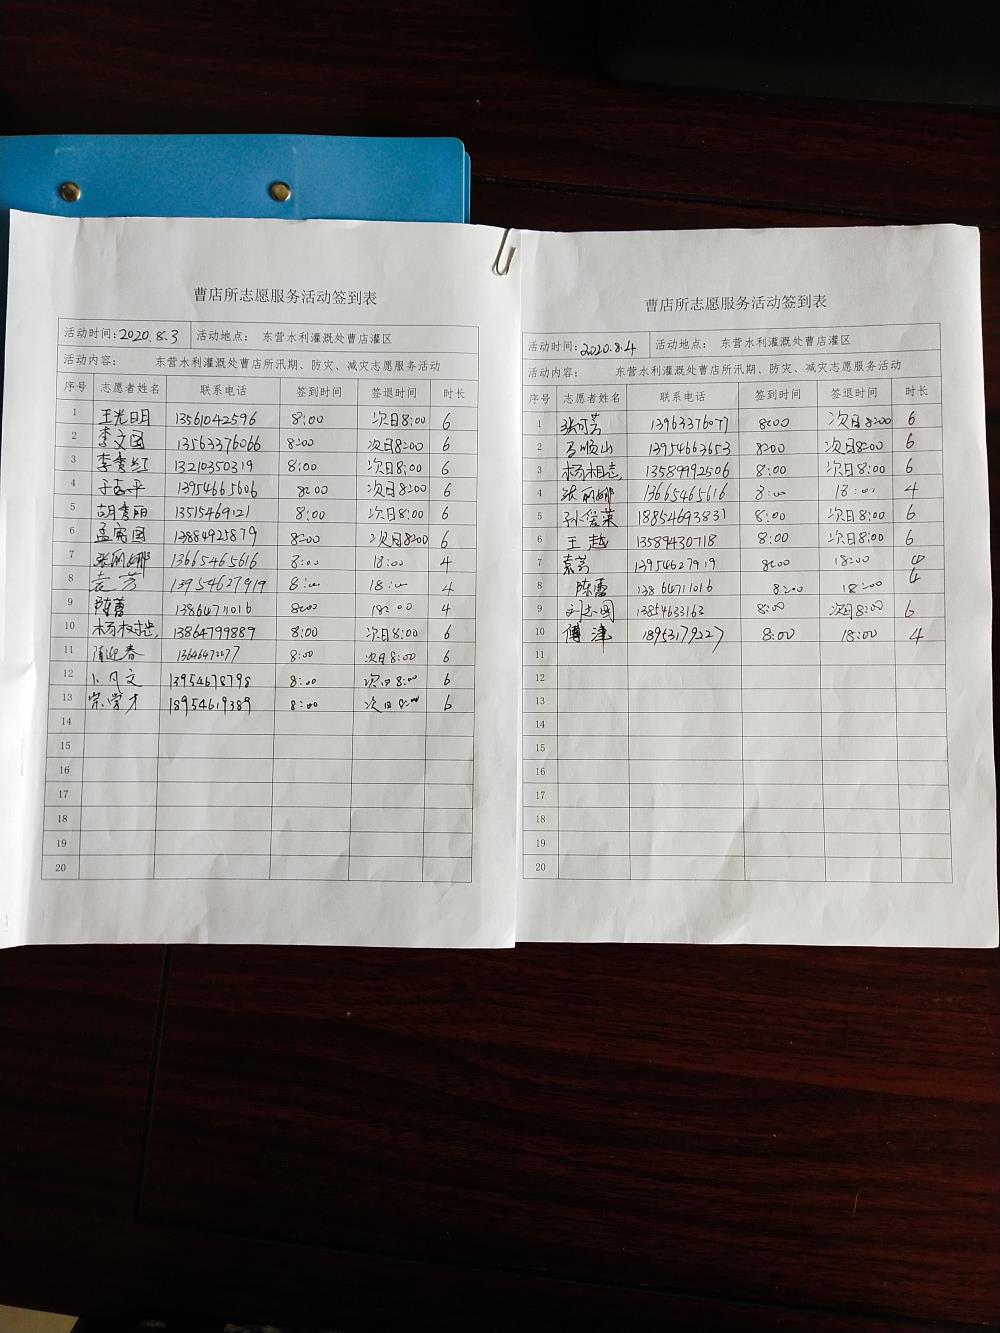 曹店所志愿服务活动签到表
活动时间:2020.8.3 活动地点: 东营水利灌溉处曹店灌区
活动内容: 东营水利灌溉处曹店所汛期、防灾、减灾志愿服务活动
序号 志愿者姓名 联系电话 签到时间 签退时间 时长
1 王光明 13561042596 8:00 次日8:00 6
2 李文国 13563376066 8:00 次日8:00 6
3 李秀红 13210350319 8:00 次日8:00 6
4 13954665606 8:00 次日8:00 6
5 胡秀丽 13515469121 8:00 次日8:00 6
6 孟宪国 13884925879 8:00 次日8:00 6
7 张丽娜 13665465616 8:00 18:00 4
8 袁芳 13954627919 8:00 18:00 4
9 陈蕾 13864711016 8:00 18:00 4
10 13864799889 8:00 次日8:00 6
11 隋迎春 13646472277 8:00 次日8:00 6
12 卜凡文 13954678798 8:00 次日8:00 6
13 宗学才 18954619389 8:00 次日8:00 6
14
15
16
17
18
19
20
曹店所志愿服务活动签到表
活动时间:2020.8.4 活动地点: 东营水利灌溉处曹店灌区
活动内容: 东营水利灌溉处曹店所汛期、防灾、减灾志愿服务活动
序号 志愿者姓名 联系电话 签到时间 签退时间 时长
1 张可芳 13963376077 8:00 次日8:00 6
2 马顺山 13954663653 8:00 次日8:00 6
3 杨相志 13589992506 8:00 次日8:00 6
4 张丽娜 13665465616 8:00 18:00 4
5 孙爱荣 18854693831 8:00 次日8:00 6
6 王越 13589430718 8:00 次日8:00 6
7 袁芳 13954627919 8:00 18:00 4
8 陈蕾 13864711016 8:00 18:00 4
9 刘志国 13854633163 8:00 次日8:00 6
10 傅津 18953179227 8:00 18:00 4
11
12
13
14
15
16
17
18
19
20